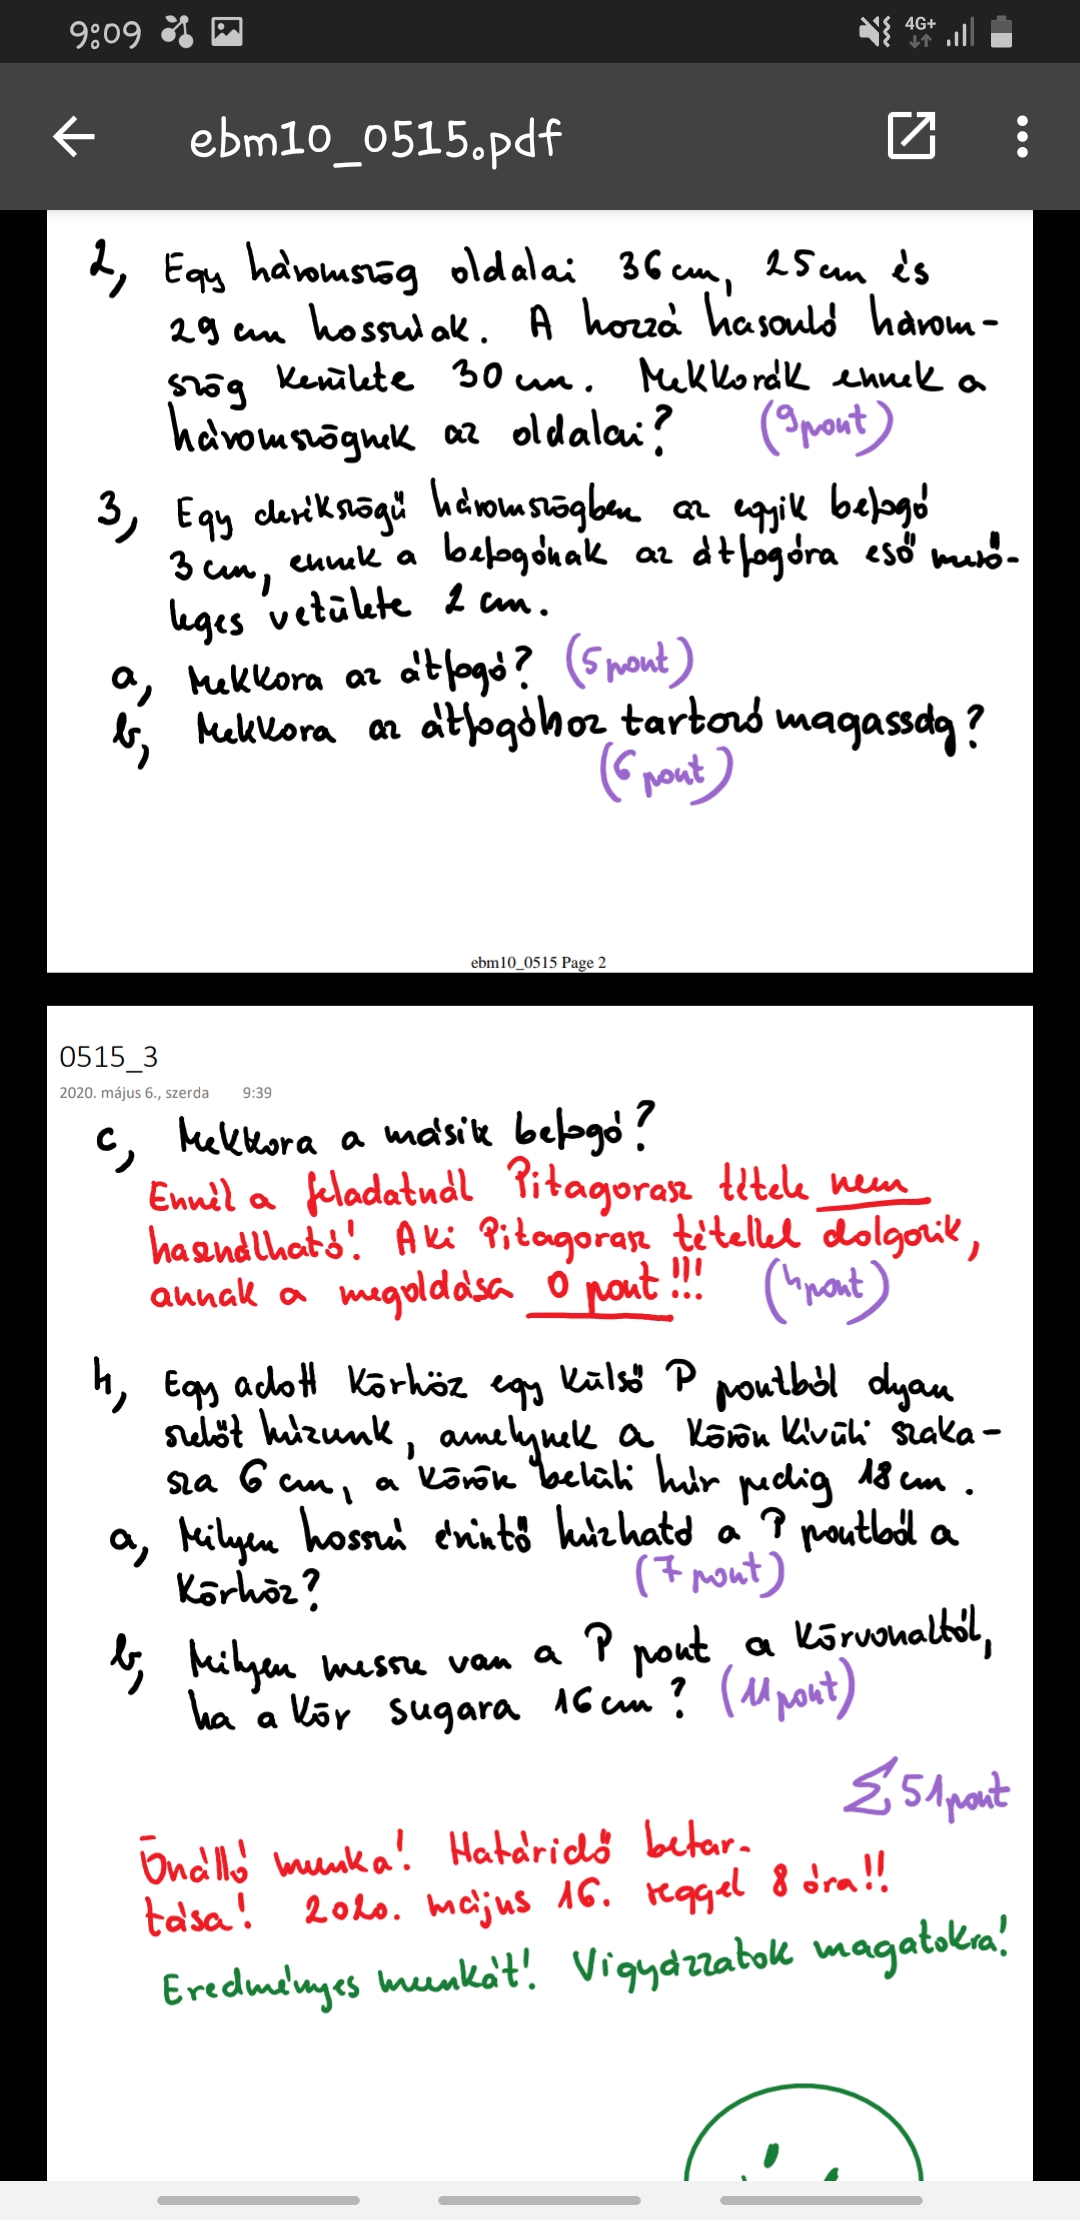 9:09
4G+
ebm10_0515.pdf
2, Egy háromszög oldalai 36 cm, 25 cm és
29 cm hosszúak. A hozzá hasonló három-
szög kerülete 30 cm. Mekkorák ennek a
háromszögnek az oldalai? (9 pont)
3, Egy derékszögű háromszögben az egyik befogó
3 cm, ennek a befogónak az átfogóra eső merő-
leges vetülete 2 cm.
a, Mekkora az átfogó? (5 pont)
b, Mekkora az átfogóhoz tartozó magasság?
(6 pont)
ebm10_0515 Page 2
0515_3
2020. május 6., szerda 9:39
c, Mekkora a másik befogó?
Ennél a feladatnál Pitagorasz tétele nem
használható! Aki Pitagorasz tétellel dolgozik,
annak a megoldása 0 pont!!! (4 pont)
4, Egy adott körhöz egy külső P pontból olyan
szelőt húzunk, amelynek a körön kívüli szaka-
sza 6 cm, a körön belüli húr pedig 18 cm.
a, Milyen hosszú érintő húzható a P pontból a
körhöz? (7 pont)
b, Milyen messze van a P pont a körvonaltól,
ha a kör sugara 16 cm? (11 pont)
Σ 51 pont
Önálló munka! Határidő betar-
tása! 2020. május 16. reggel 8 óra!!
Eredményes munkát! Vigyázzatok magatokra!